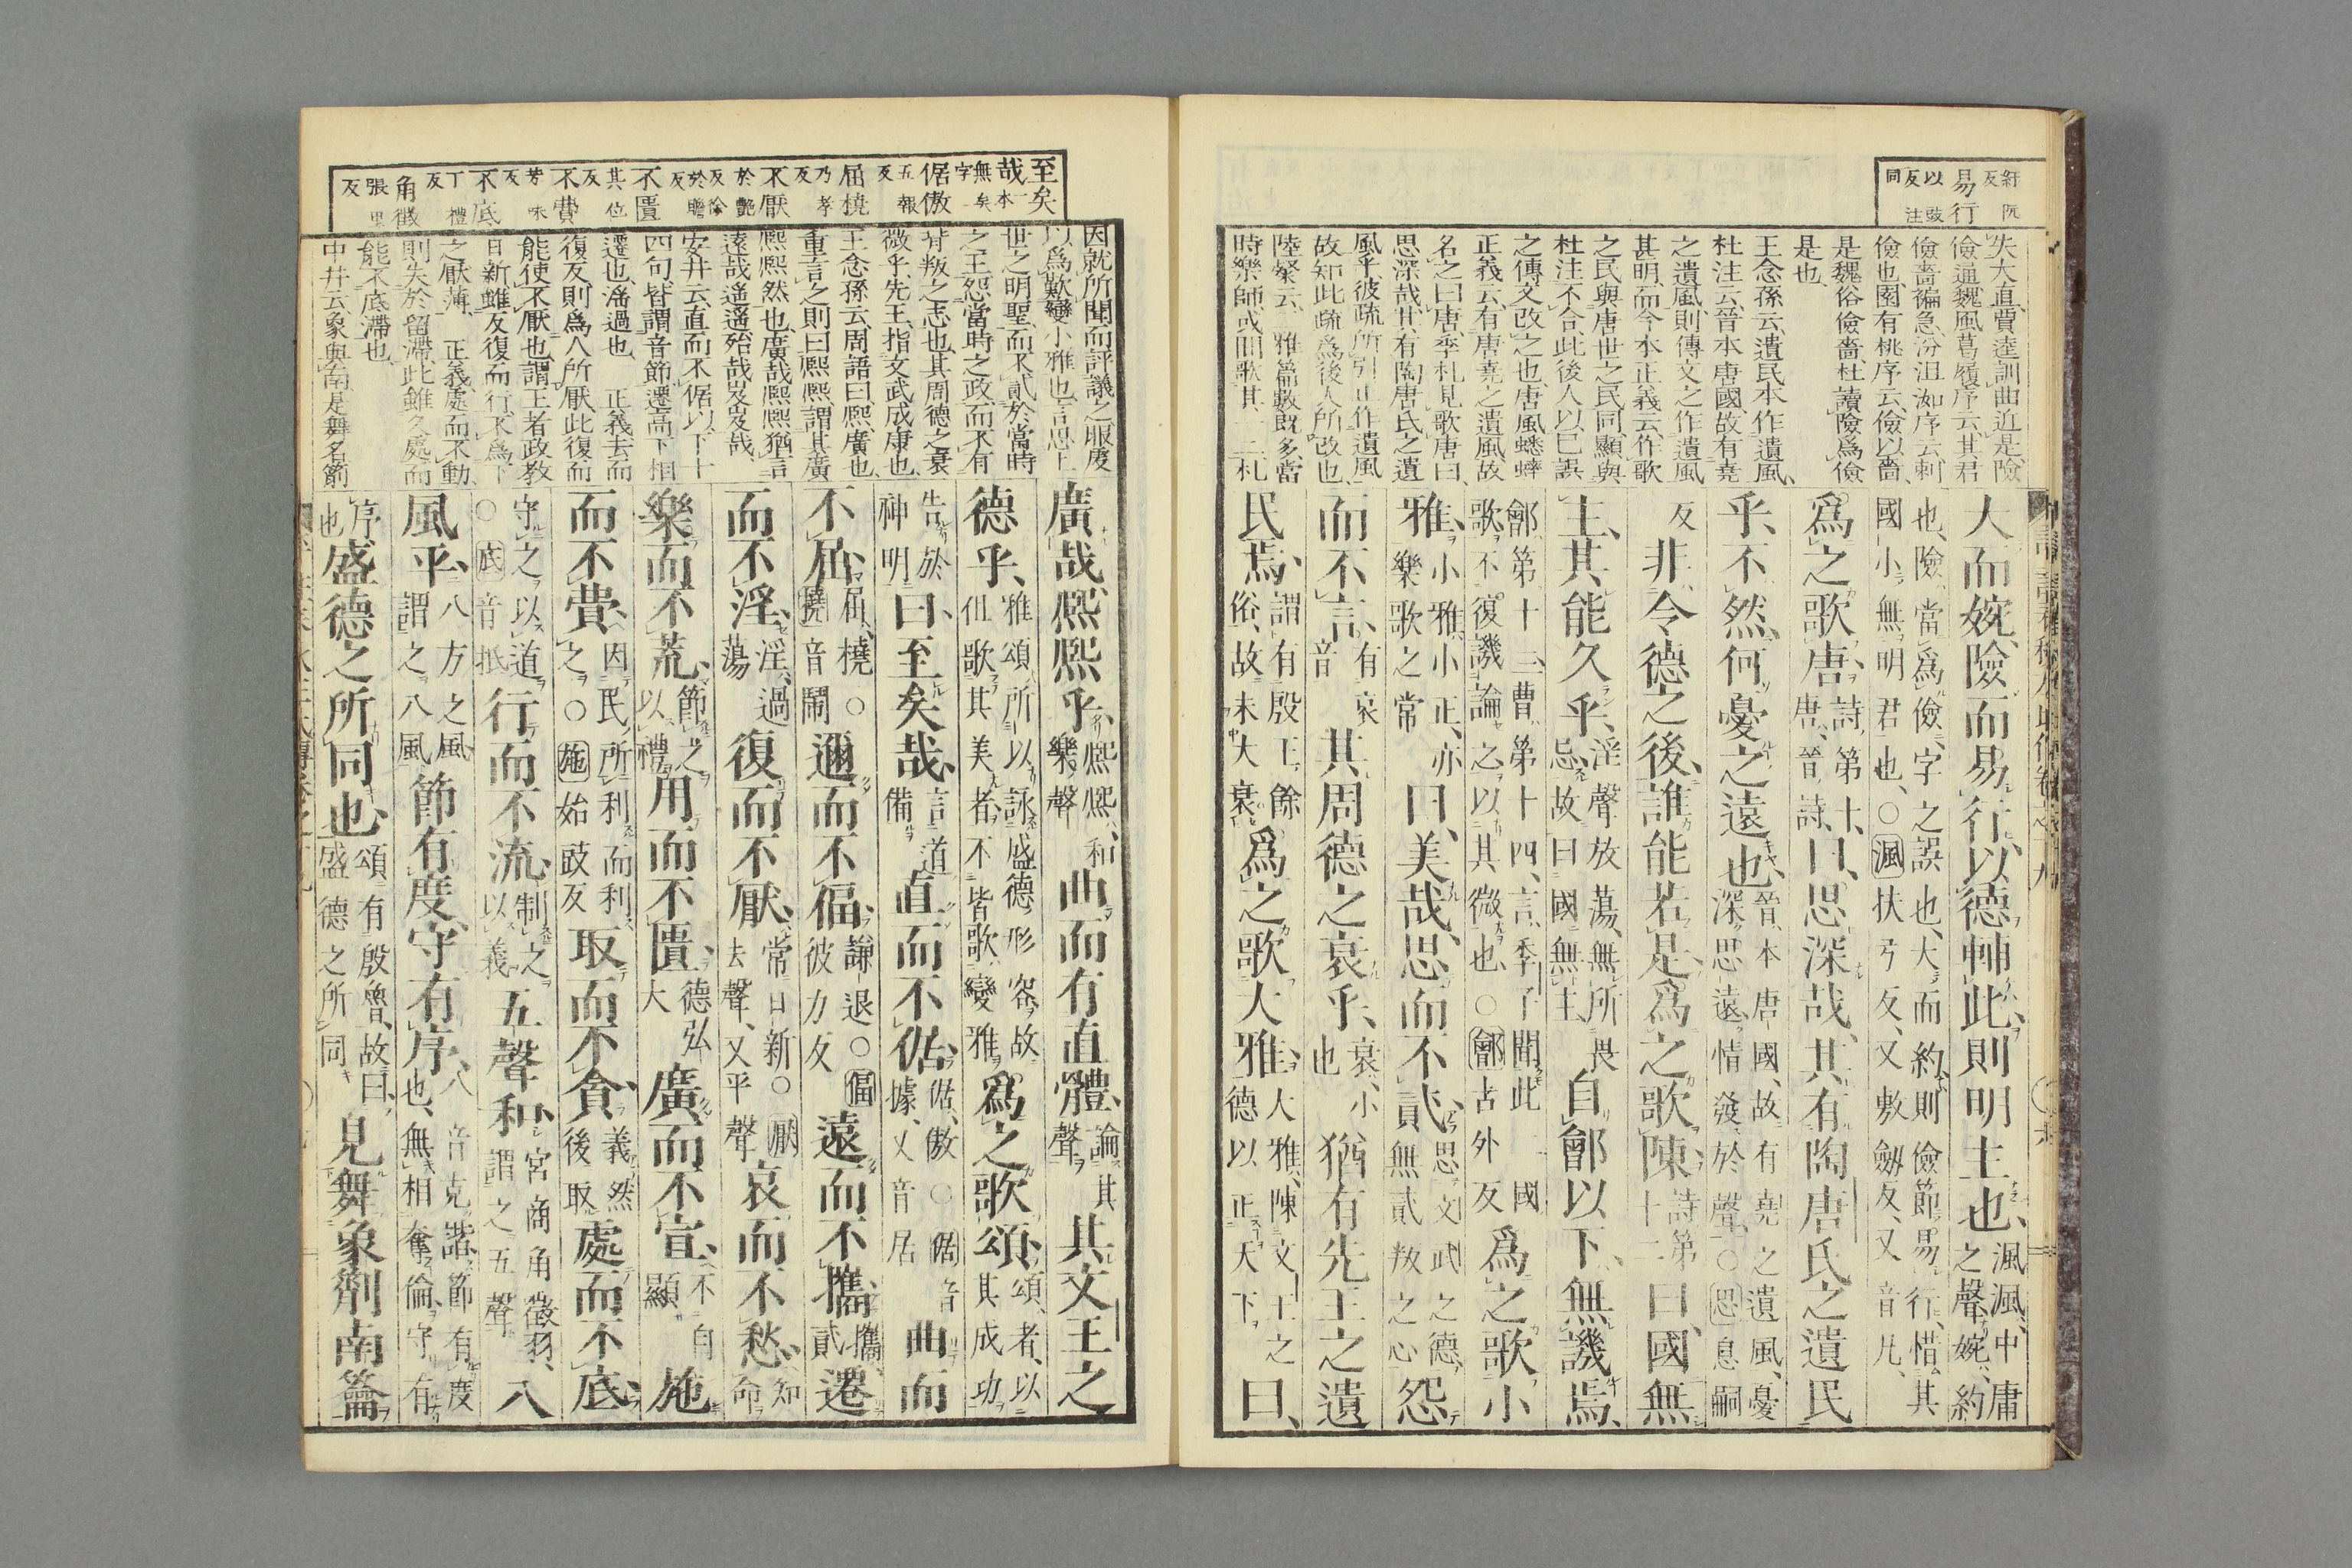 紆阮反
易行
以豉反注同
失大直賈逵訓曲近是險
儉通魏風葛屨序云其君
儉嗇褊急汾沮洳序云刺
儉也園有桃序云儉以嗇
是魏俗儉嗇杜讀險爲儉
是也
王念孫云遺民本作遺風
杜注云晉本唐國故有堯
之遺風則傳文之作遺風
甚明而今本正義云作歌
之民與唐世之民同顯與
杜注不合此後人以已誤
之傳文改之也唐風蟋蟀
正義云有唐堯之遺風故
名之曰唐季札見歌唐曰
思深哉其有陶唐氏之遺
風乎彼疏所引正作遺風
故知此疏爲後人所改也
陸粲云雅篇數既多當
時樂師或間歌其一二札
大而婉險而易行以德輔此則明主也渢渢中庸之聲婉約
也險當爲儉字之誤也大而約則儉節易行惜其
國小無明君也○渢扶弓反又敷劒反又音凡
爲之歌唐詩第十唐晉詩曰思深哉其有陶唐氏之遺民
乎不然何憂之遠也晉本唐國故有堯之遺風憂深思遠情發於聲○思息嗣
反非令德之後誰能若是爲之歌陳詩第十二曰國無
主其能久乎淫聲放蕩無所畏忌故曰國無主自鄶以下無譏焉
鄶第十三曹第十四言季子聞此二國歌不復譏論之以其微也○鄶古外反爲之歌小
雅小雅小正亦樂歌之常曰美哉思而不貳思文武之德無貳叛之心怨
而不言有哀音其周德之衰乎衰小也猶有先王之遺
民焉謂有殷王餘俗故未大衰爲之歌大雅大雅陳文王之德以正天下曰
至矣哉一本無矣字
倨傲五報反
屈橈乃孝反
不厭於艷反徐於贍反
不匱其位反
不費芳味反
不底丁禮反
角徵張里反
因就所聞而評議之服虔
以爲歎變小雅也言思上
世之明聖而不貳於當時
之王怨當時之政而不有
背叛之志也其周德之衰
微乎先王指文武成康也
王念孫云周語曰熙廣也
重言之則曰熙熙謂其廣
熙熙然也廣哉熙熙猶言
遠哉遙遙殆哉岌岌哉
安井云直而不倨以下十
四句皆謂音節遷高下相
遷也淫過也 正義去而
復反則爲人所厭此復而
能使不厭也謂王者政教
日新雖反復而行不爲下
之厭薄 正義處而不動
則失於留滯此雖久處而
能不底滯也
中井云象與南是舞名箾
廣哉熙熙乎熙熙和樂聲曲而有直體論其聲其文王之
德乎雅頌所以詠盛德形容故但歌其美者不皆歌變雅爲之歌頌頌者以其成功
告於神明曰至矣哉言道備直而不倨倨傲○倨音據又音居曲而
不屈屈橈○橈音鬧邇而不偪謙退○偪彼力反遠而不攜攜貳遷
而不淫淫過蕩復而不厭常日新○厭去聲又平聲哀而不愁知命
樂而不荒節之以禮用而不匱德弘大廣而不宣不自顯施
而不費因民所利而利之○施始豉反取而不貪義然後取處而不底
守之以道○底音抵行而不流制之以義五聲和宮商角徵羽謂之五聲八
風平八方之風謂之八風節有度守有序八音克諧節有度也無相奪倫守有
序也盛德之所同也頌有殷魯故曰盛德之所同見舞象箾南籥